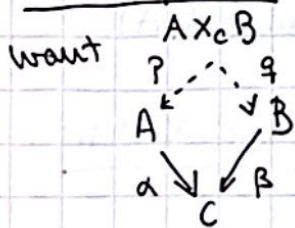 want A ×_C B
p q
A B
α β
C